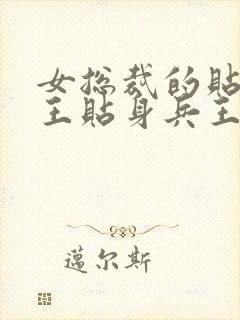 女总裁的贴
王贴身兵王
邁尔斯